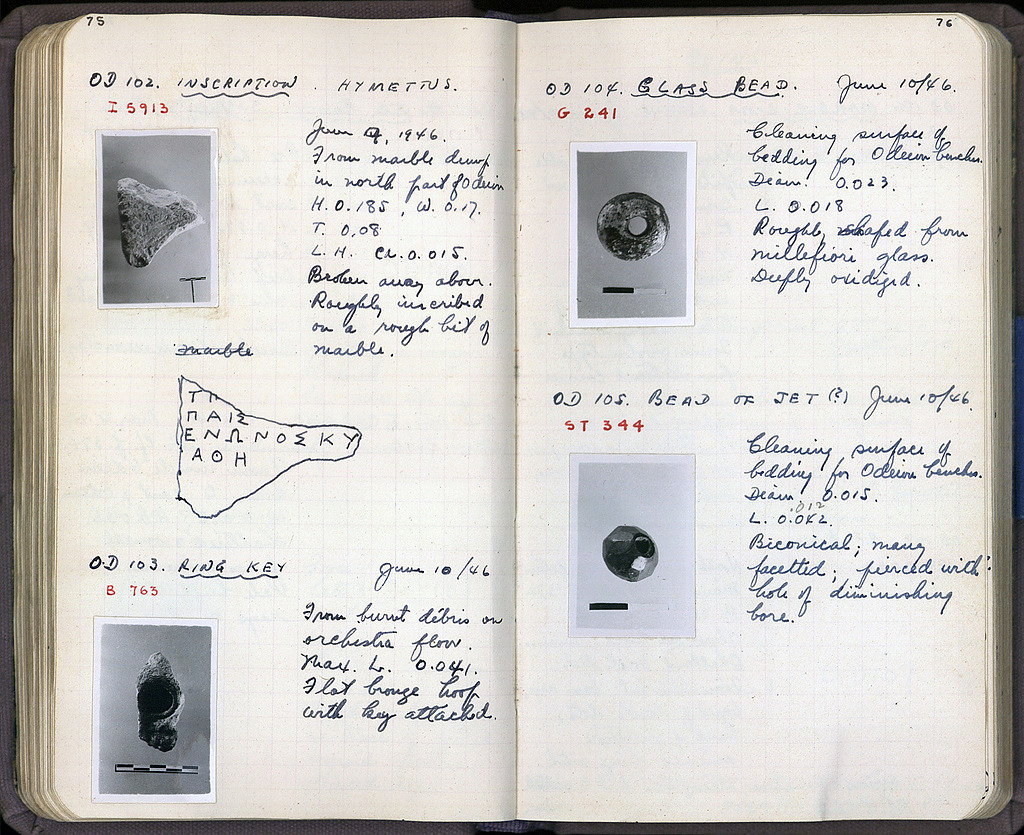 75
OD 102. INSCRIPTION. HYMETTUS.
I 5913
June , 1946.
From marble dump
in north part of Odeion
H. 0.185, W. 0.17.
T. 0,08
L. H. ca. 0.015.
Broken away above.
Roughly inscribed
on a rough bit of
marble.
marble
ΠΑΙΣ
ΕΝΩΝΟΣΚΥ
ΑΘΗ
OD 103. RING KEY June 10/46
B 763
From burnt débris on
orchestra floor.
Max. L. 0.041.
Flat bronze hoop
with key attached.
76
OD 104. GLASS BEAD. June 10/46.
G 241
Cleaning surface of
bedding for Odeion benches.
Diam. 0.023.
L. 0.018
Roughly shaped from
millefiori glass.
Deeply oxidized.
OD 105. BEAD OF JET (?) June 10/46.
ST 344
Cleaning surface of
bedding for Odeion benches.
Diam. 0.015.
.012
L. 0.042.
Biconical; many
facetted; pierced with
hole of diminishing
bore.